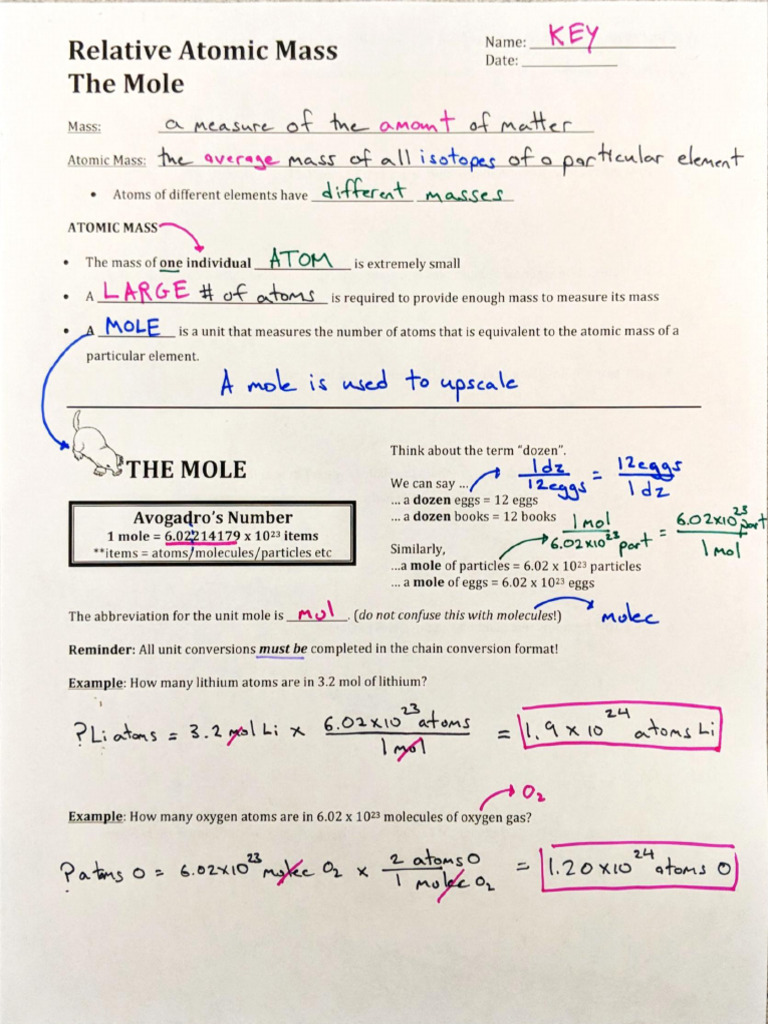 Relative Atomic Mass
The Mole
Name: KEY
Date: ____________
Mass: a measure of the amount of matter
Atomic Mass: the average mass of all isotopes of a particular element
• Atoms of different elements have different masses
ATOMIC MASS
• The mass of one individual ATOM is extremely small
• A LARGE # of atoms is required to provide enough mass to measure its mass
• A MOLE is a unit that measures the number of atoms that is equivalent to the atomic mass of a
particular element.
A mole is used to upscale
THE MOLE
Avogadro's Number
1 mole = 6.02214179 x 10²³ items
**items = atoms/molecules/particles etc
Think about the term "dozen".
We can say ... 1dz / 12eggs = 12eggs / 1dz
... a dozen eggs = 12 eggs
... a dozen books = 12 books
1 mol / 6.02x10²³ part = 6.02x10²³ part / 1 mol
Similarly,
...a mole of particles = 6.02 x 10²³ particles
... a mole of eggs = 6.02 x 10²³ eggs
The abbreviation for the unit mole is mol. (do not confuse this with molecules!) molec
Reminder: All unit conversions must be completed in the chain conversion format!
Example: How many lithium atoms are in 3.2 mol of lithium?
? Li atoms = 3.2 mol Li x 6.02x10²³ atoms / 1 mol = 1.9 x 10²⁴ atoms Li
O₂
Example: How many oxygen atoms are in 6.02 x 10²³ molecules of oxygen gas?
? atms O = 6.02x10²³ molec O₂ x 2 atoms O / 1 molec O₂ = 1.20x10²⁴ atoms O